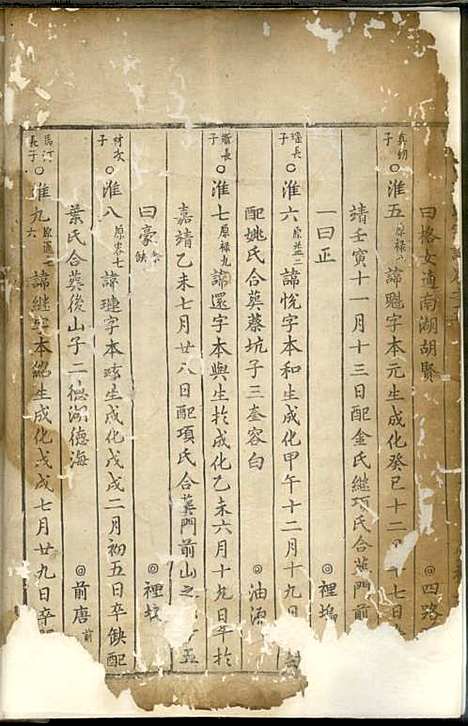 曰格女適南湖胡賢 ◎四路
真幼子 ○淮五 原禄 諱魁字本元生成化癸巳十二 七日
靖壬寅十一月十三日配金氏繼項氏合葬門前
一曰正 ◎裡塢
瑶長子 ○淮六 原益二 諱悅字本和生成化甲午十二月十九
配姚氏合葬蔡坑子三奎容白 ◎油
長子 ○淮七 原禄九 諱還字本與生於成化乙未六月十九日卒於
嘉靖乙未七月廿八日配項氏合葬門前山之 子五
曰豪 ◎裡坟
材次子 ○淮八 原零七 諱璉字本玹生成化戊戌二月初五日卒缺配
葉氏合葬後山子二德湖德海 ◎前唐 前
長子 ○淮九 諱繼 字本 生成化戊戌七月廿九日卒